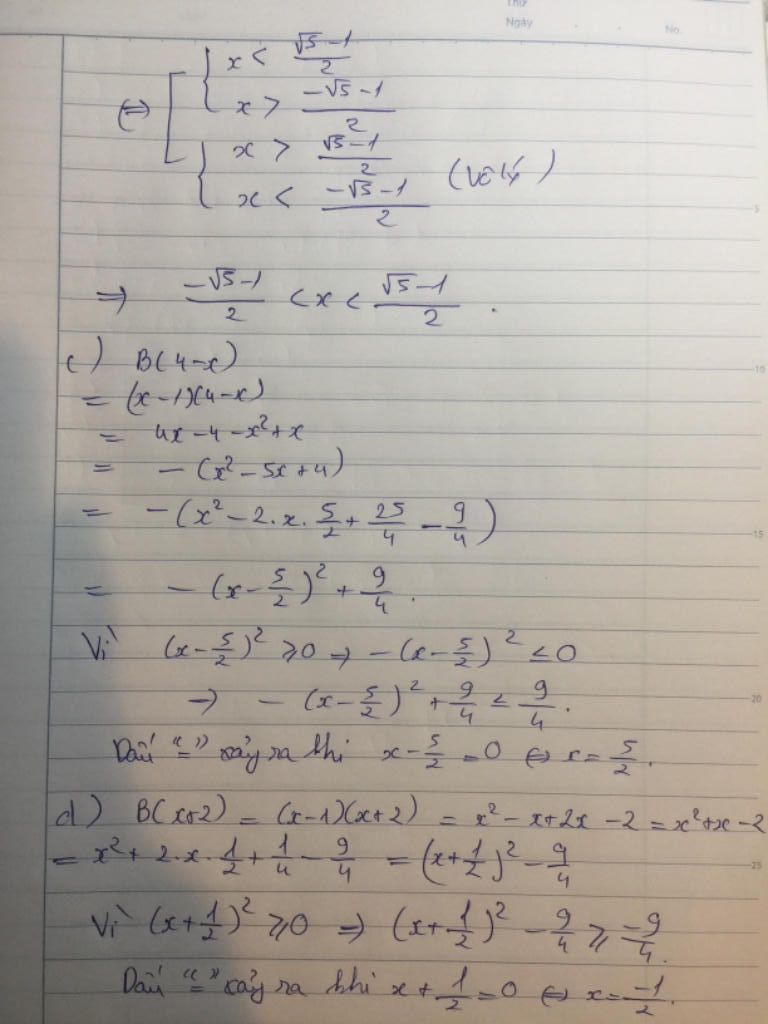 Thứ
Ngày . . No.
⇔ [ { x < (√5-1)/2
x > (-√5-1)/2
{ x > (√5-1)/2
x < (-√5-1)/2 (Vô lý)
⇒ (-√5-1)/2 < x < (√5-1)/2 .
c) B(4-x)
= (x-1)(4-x)
= 4x-4-x²+x
= -(x²-5x+4)
= -(x²-2.x.5/2+25/4-9/4)
= -(x-5/2)²+9/4.
Vì (x-5/2)² ≥0 ⇒ -(x-5/2)² ≤0
⇒ -(x-5/2)²+9/4 ≤ 9/4.
Dấu "=" xảy ra khi x-5/2=0 ⇔ x=5/2.
d) B(x+2) = (x-1)(x+2) = x²-x+2x-2 = x²+x-2
= x²+2.x.1/2+1/4-9/4 = (x+1/2)²-9/4
Vì (x+1/2)² ≥0 ⇒ (x+1/2)²-9/4 ≥ -9/4.
Dấu "=" xảy ra khi x+1/2=0 ⇔ x=-1/2.
5
10
15
20
25